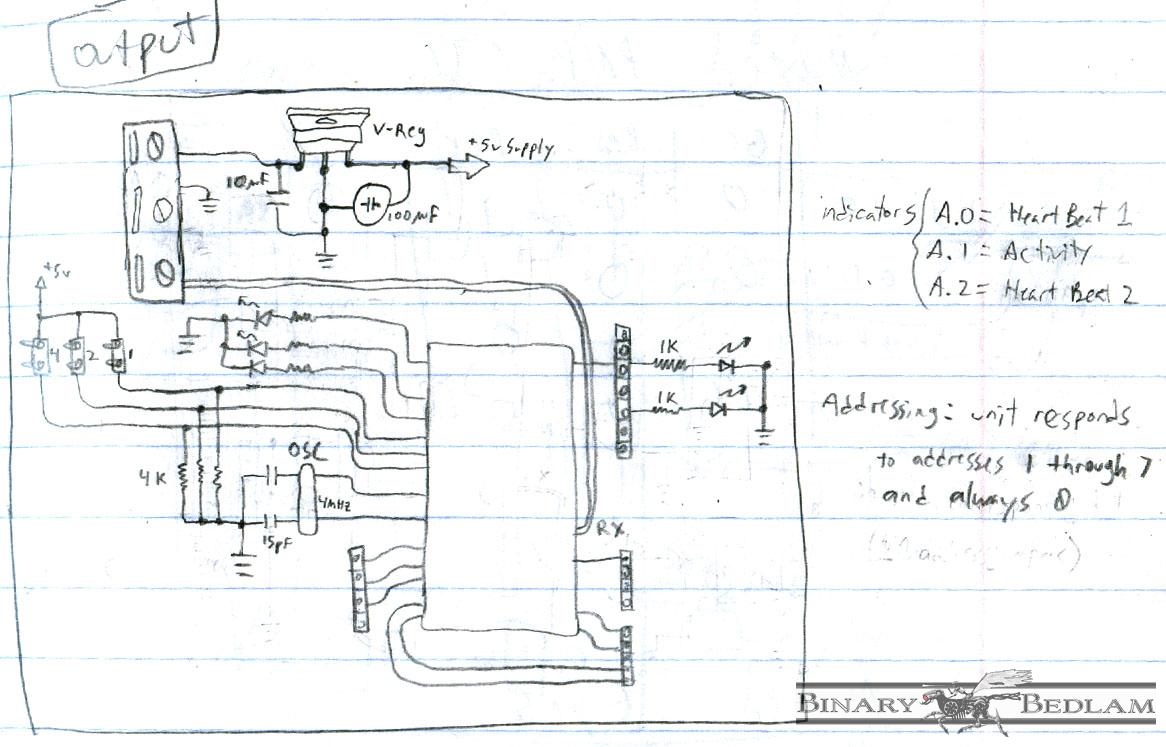 output
V-Reg
+5v Supply
10μF
100μF
+5v
4
2
1
4K
OSC
4MHz
15pF
1K
1K
RX
indicators
A.0 = Heart Beat 1
A.1 = Activity
A.2 = Heart Beat 2
Addressing: unit responds
to addresses 1 through 7
and always 0
BINARY BEDLAM